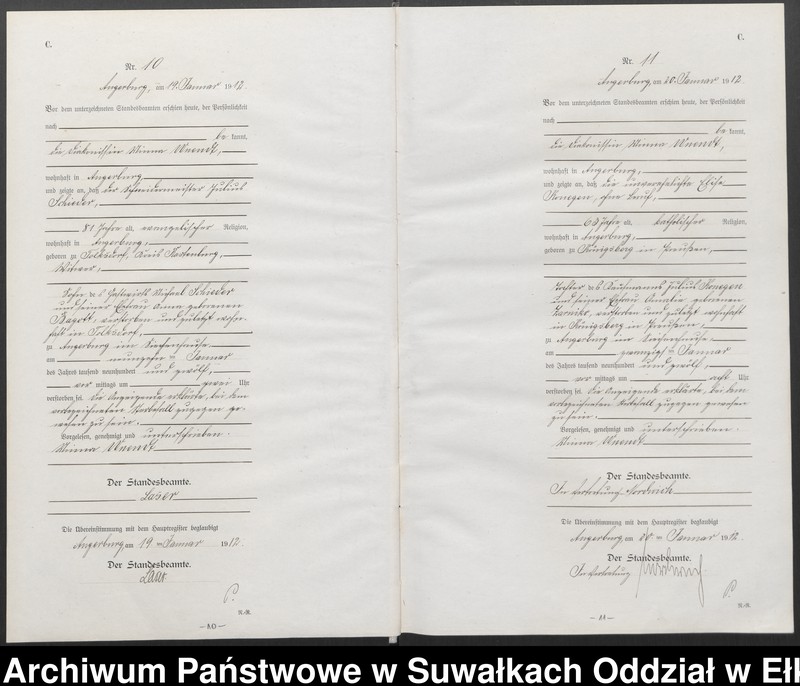 C.
Nr. 10
Angerburg, am 19. Januar 1912.
Vor dem unterzeichneten Standesbeamten erschien heute, der Persönlichkeit
nach
be kannt,
die Diakonissin Minna
wohnhaft in Angerburg
und zeigte an, daß der Schneidermeister Julius
Schieder,
81 Jahre alt, evangelischer Religion,
wohnhaft in Angerburg,
geboren zu Tolksdorf, Kreis Rastenburg,
Witwer,
Sohn des Gastwirts Michael Schieder
und seiner Ehefrau Anna geborenen
verstorben und zuletzt wohn-
haft in Tolksdorf,
zu Angerburg im Siechenhause
am neunzehnten Januar
des Jahres tausend neunhundert und zwölf,
vor mittags um zwei Uhr
verstorben sei. Die Anzeigende erklärte, bei dem
vorbezeichneten Sterbefall zugegen ge-
wesen zu sein.
Vorgelesen, genehmigt und unterschrieben.
Minna
Der Standesbeamte.
Laser
Die Übereinstimmung mit dem Hauptregister beglaubigt
Angerburg, am 19. Januar 1912.
Der Standesbeamte.
Laser
R.-R.
— 10 —
C.
Nr. 11
Angerburg, am 20. Januar 1912.
Vor dem unterzeichneten Standesbeamten erschien heute, der Persönlichkeit
nach
be kannt,
die Diakonissin Minna
wohnhaft in Angerburg,
und zeigte an, daß die unverehelichte Elise
Konegen, ohne Beruf,
Jahre alt, katholischer Religion,
wohnhaft in Angerburg,
geboren zu Königsberg in Preußen,
Tochter des Kaufmanns Julius Konegen
und seiner Ehefrau Amalie geborenen
verstorben und zuletzt wohnhaft
in Königsberg in Preußen,
zu Angerburg im Siechenhause
am zwanzigsten Januar
des Jahres tausend neunhundert und zwölf,
vor mittags um acht Uhr
verstorben sei. Die Anzeigende erklärte, bei dem
vorbezeichneten Sterbefall zugegen gewesen
zu sein.
Vorgelesen, genehmigt und unterschrieben.
Minna
Der Standesbeamte.
In Vertretung
Die Übereinstimmung mit dem Hauptregister beglaubigt
Angerburg, am 20. Januar 1912.
Der Standesbeamte.
In Vertretung
R.-R.
— 11 —
Archiwum Państwowe w Suwałkach Oddział w Ełk